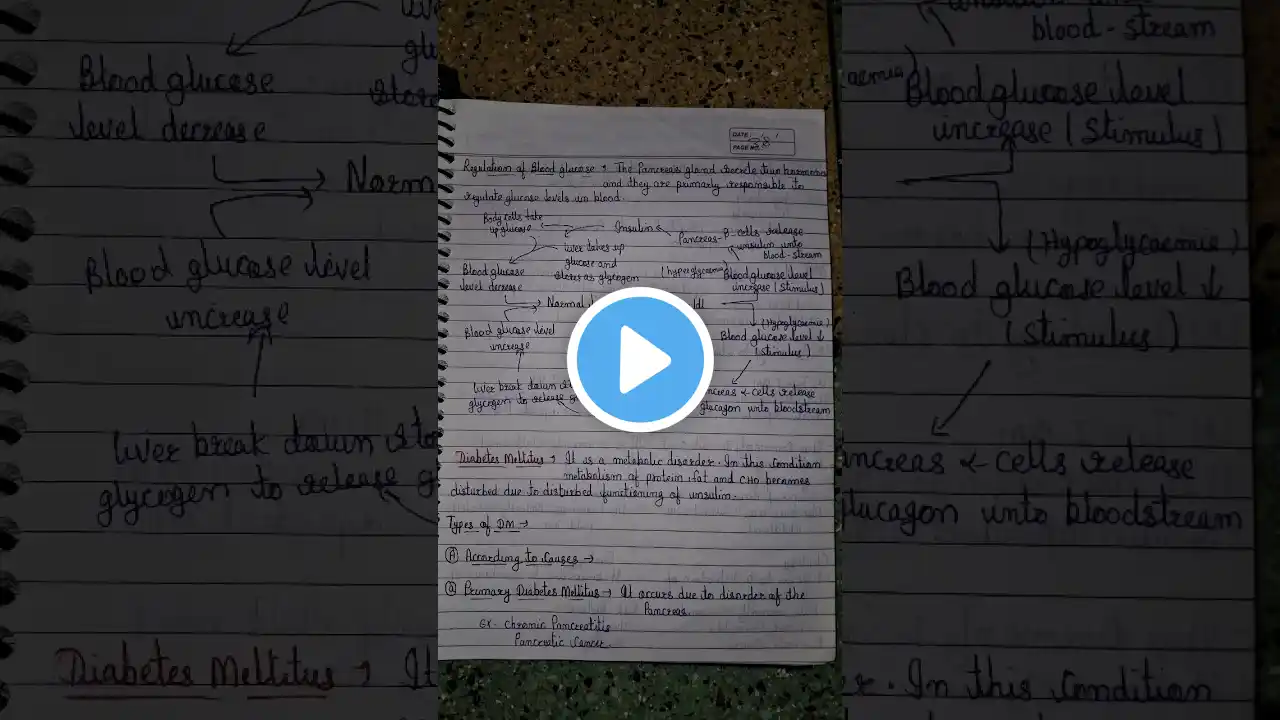 DATE: / /
PAGE NO.
Regulation of Blood glucose → The Pancreas gland secrete two hormones
and they are primarly responsible to
regulate glucose levels in blood.
Body cells take
up glucose
Insulin
Pancreas-β-cells release
insulin into
blood-stream
liver takes up
glucose and
stores as glycogen
Blood glucose
level decrease
(hyperglycaemia)
Blood glucose level
increase (Stimulus)
Normal
Blood glucose level
increase
(Hypoglycaemie)
Blood glucose level ↓
(stimulus)
liver break down
glycogen to release
α-cells release
glucagon into bloodstream
Diabetes Mellitus → It is a metabolic disorder. In this condition
metabolism of protein, fat and CHO becomes
disturbed due to disturbed functioning of insulin.
Types of DM →
Ⓐ According to Causes →
ⓐ Primary Diabetes Mellitus → It occurs due to disorder of the
Pancreas.
Ex- chronic Pancreatitis
Pancreatic Cancer.